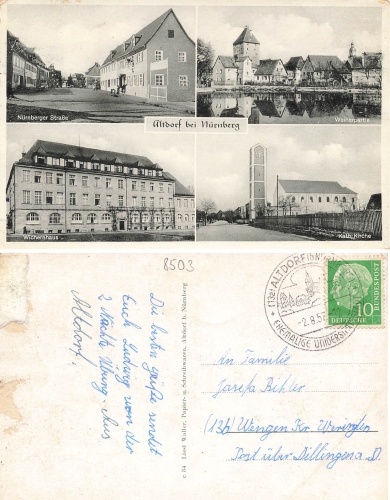 Nürnberger Straße
Weiherpartie
Altdorf bei Nürnberg
Wichernhaus
Kath. Kirche
8503
Die besten Grüße sendet
Euch Ludwig von der
2 Nächte Übung aus
Altdorf.
c 84 Liesl Waller, Papier- u. Schreibwaren, Altdorf b. Nürnberg
(13a) ALTDORF (b NÜRN
-2.8.5
EHEMALIGE UNIVERSI
10
DEUTSCHE
BUNDESPOST
An Familie
Josefa Bihler
(13b) Wengen Kr. Wertingen
Post über Dillingen a D.